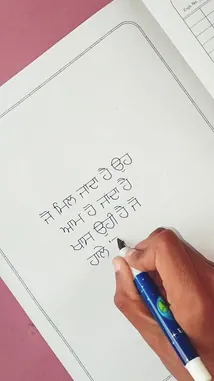 ਜੋ ਮਿਲ ਜਾਂਦਾ ਹੈ ਉਹ
ਆਮ ਹੋ ਜਾਂਦਾ ਹੈ
ਖਾਸ ਉਹੀ ਹੈ ਜੋ
ਹਾਲੇ